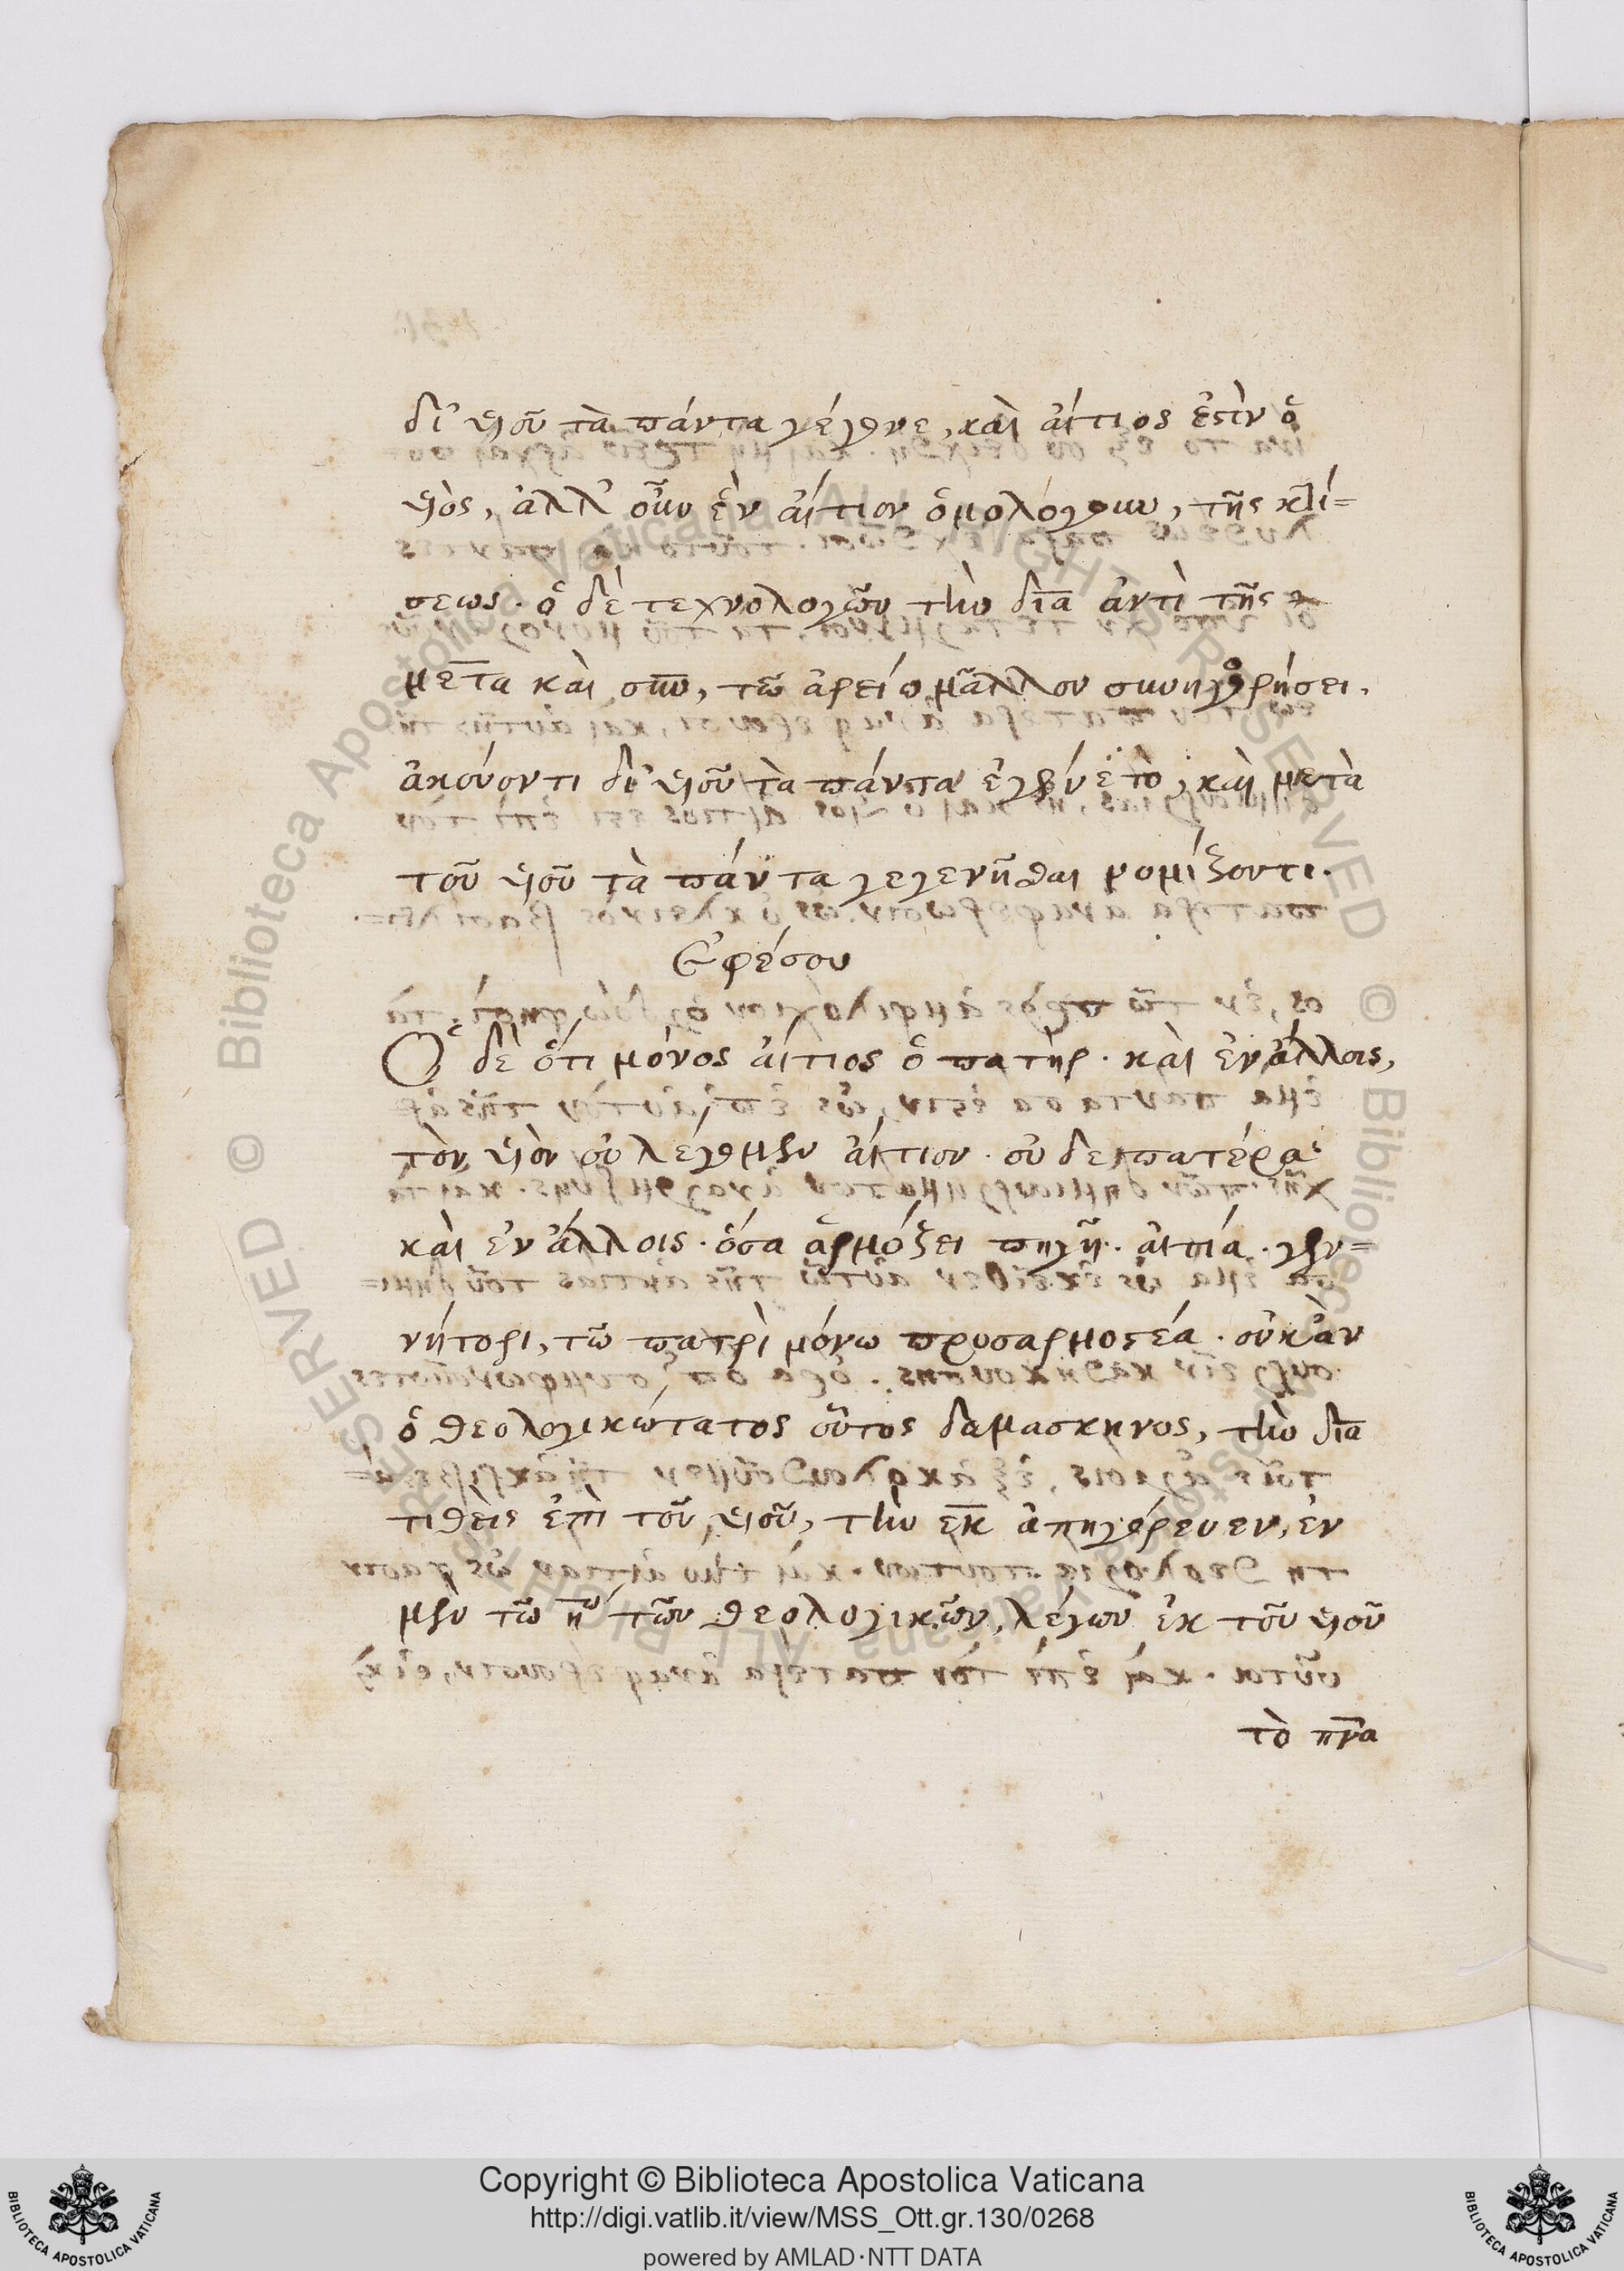 δι' υἱοῦ τὰ πάντα γέγονε, καὶ αἴτιος ἐστὶν ὁ
υἱὸς, ἀλλ' οὖν ἓν αἴτιον ὁμολόγουν, τῆς κτί=
σεως. ὁ δὲ τεχνολογῶν τὴν διὰ ἀντὶ τῆς
μετὰ καὶ σὺν, τῶ ἀρείω μᾶλλον συνηγορήσει.
ἀκούοντι δι' υἱοῦ τὰ πάντα ἐγένετο, καὶ μετὰ
τοῦ υἱοῦ τὰ πάντα γεγενῆσθαι νομίζοντι.
Ἐφέσου
Ὁ δὲ ὅτι μόνος αἴτιος ὁ πατὴρ. καὶ ἐν ἄλλοις,
τὸν υἱὸν οὐ λέγομεν αἴτιον. οὐδὲ πατέρα.
καὶ ἐν ἄλλοις. ὅσα ἁρμόζει πηγῆ. αἰτία. γεν=
νήτορι, τῶ πατρὶ μόνω προσαρμοστέα. οὐκ ἂν
ὁ θεολογικώτατος οὗτος δαμασκηνος, τὴν διὰ
τιθεὶς ἐπὶ τοῦ υἱοῦ, τὴν ἐκ ἀπηγόρευεν, ἐν
μὲν τῶ ηω τῶν θεολογικῶν, λέγων ἐκ τοῦ υἱοῦ
τὸ πνα
Copyright © Biblioteca Apostolica Vaticana
http://digi.vatlib.it/view/MSS_Ott.gr.130/0268
powered by AMLAD·NTT DATA
BIBLIOTECA APOSTOLICA VATICANA
BIBLIOTECA APOSTOLICA VATICANA